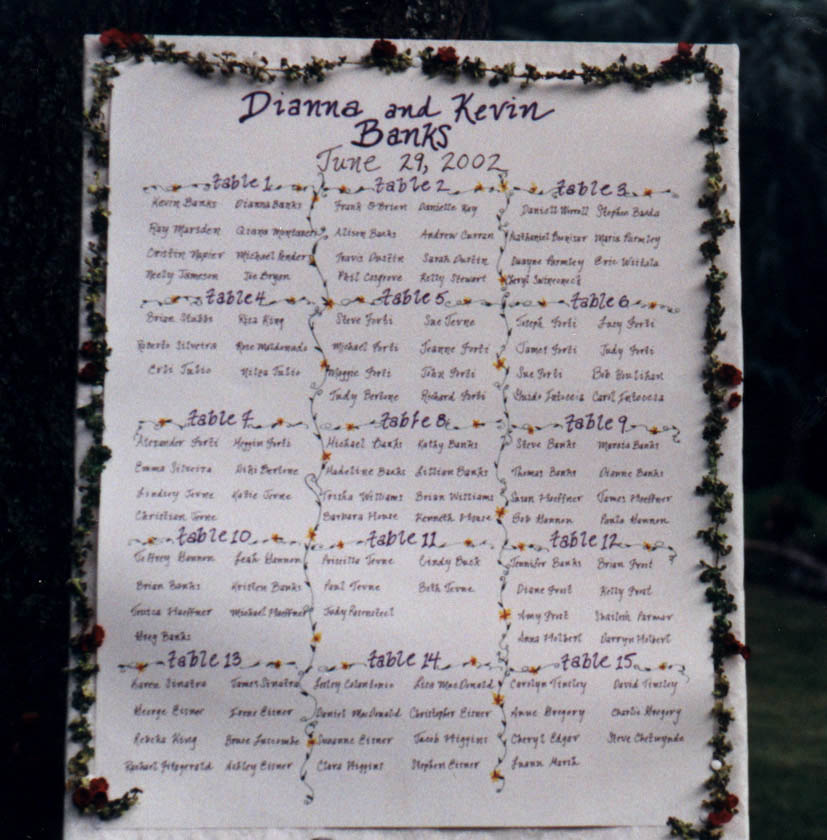 Dianna and Kevin
Banks
June 29, 2002
table 1
Kevin Banks Dianna Banks
Ray Marsden Qiana
Cristin Napier Michael
Neely Jameson Joe Bryan
table 2
Frank O'Brien Danielle Kay
Alison Banks Andrew Curran
Travis Dustin Sarah Dustin
Phil Cosgrove Kelly Stewart
table 3
Daniell Stephen Banks
Nathaniel Maria Parmley
Duayne Parmley Eric
Cheryl
table 4
Brian Stubbs Rita King
Roberto Silveira Rose Maldonado
Tulio Tulio
table 5
Steve Forti Sue Terne
Michael Forti Jeanne Forti
Maggie Forti John Forti
Judy Bertone Richard Forti
table 6
Joseph Forti Lucy Forti
James Forti Judy Forti
Sue Forti Bob Houlihan
Guido Intoccia Carol Intoccia
table 7
Alexander Forti Forti
Emma Silveira Niki Bertone
Lindsey Terne Katie Terne
Christian Terne
table 8
Michael Banks Kathy Banks
Madeline Banks Lillian Banks
Trisha Williams Brian Williams
Barbara House Kenneth House
table 9
Steve Banks Banks
Thomas Banks Dianne Banks
Susan Hoeffner James Hoeffner
Bob Hannon Paula Hannon
table 10
Jeffrey Hannon Leah Hannon
Brian Banks Kristen Banks
Hoeffner Michael Hoeffner
Banks
table 11
Priscilla Terne Cindy Buck
Paul Terne Beth Terne
Judy
table 12
Jennifer Banks Brian Frost
Diane Frost Kelly Frost
Amy Frost Shailesh Parmar
Anna Holbert Darryn Holbert
table 13
Karen Sinatra James Sinatra
George Eisner Irene Eisner
Rebeka King Bruce Luscombe
Rachael Fitzgerald Ashley Eisner
table 14
Lesley Colantonio Lisa MacDonald
Daniel MacDonald Christopher Eisner
Suzanne Eisner Jacob Higgins
Clara Higgins Stephen Eisner
table 15
Carolyn Tinsley David Tinsley
Anne Gregory Charlie Gregory
Cheryl Edgar Steve Chetwynde
Luann Marsh